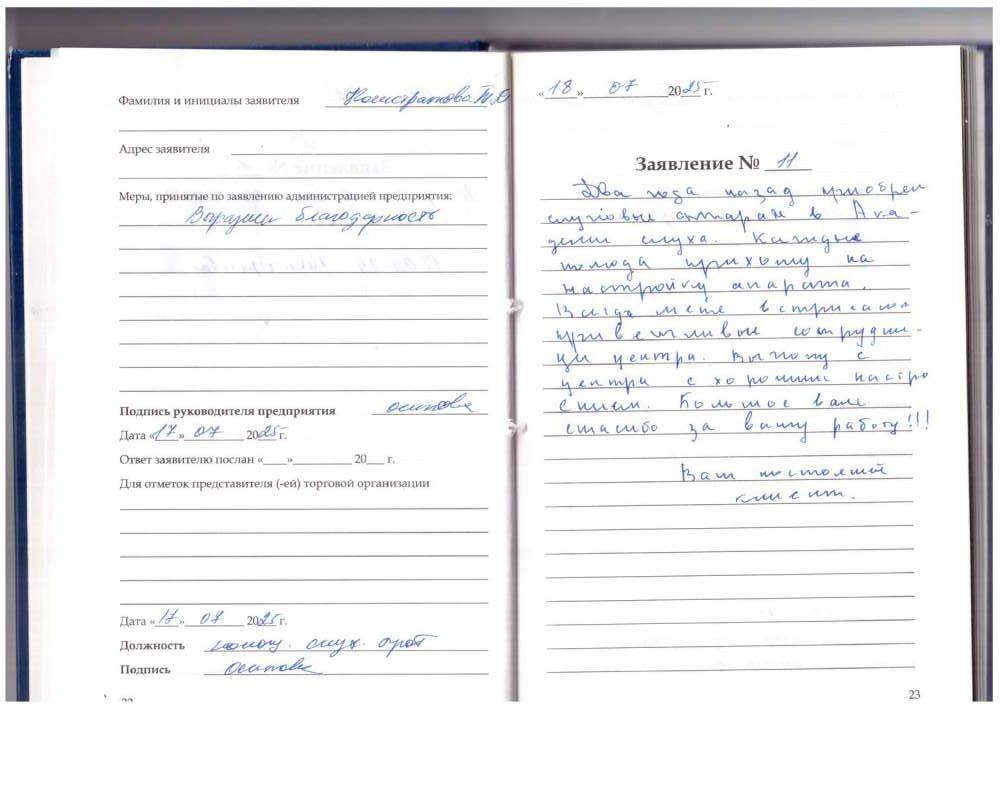 Фамилия и инициалы заявителя
Адрес заявителя
Меры, принятые по заявлению администрацией предприятия:
благодарность
Подпись руководителя предприятия осипова
Дата «17» 07 2025 г.
Ответ заявителю послан «___» ________ 20__ г.
Для отметок представителя (-ей) торговой организации
Дата «17» 07 2025 г.
Должность помощ. слух. прот
Подпись осипова
«18» 07 2025 г.
Заявление № 11
Два года назад приобрел
слуховые аппарат в Ака-
демии слуха. Каждые
полгода прихожу на
настройку апарата.
Всегда меня встричают
приветливые сотрудни-
ци центра. Выхожу с
центра с хорошим настро
ением. Большое вам
спасибо за вашу работу!!!
Ваш постояный
клиент.
23